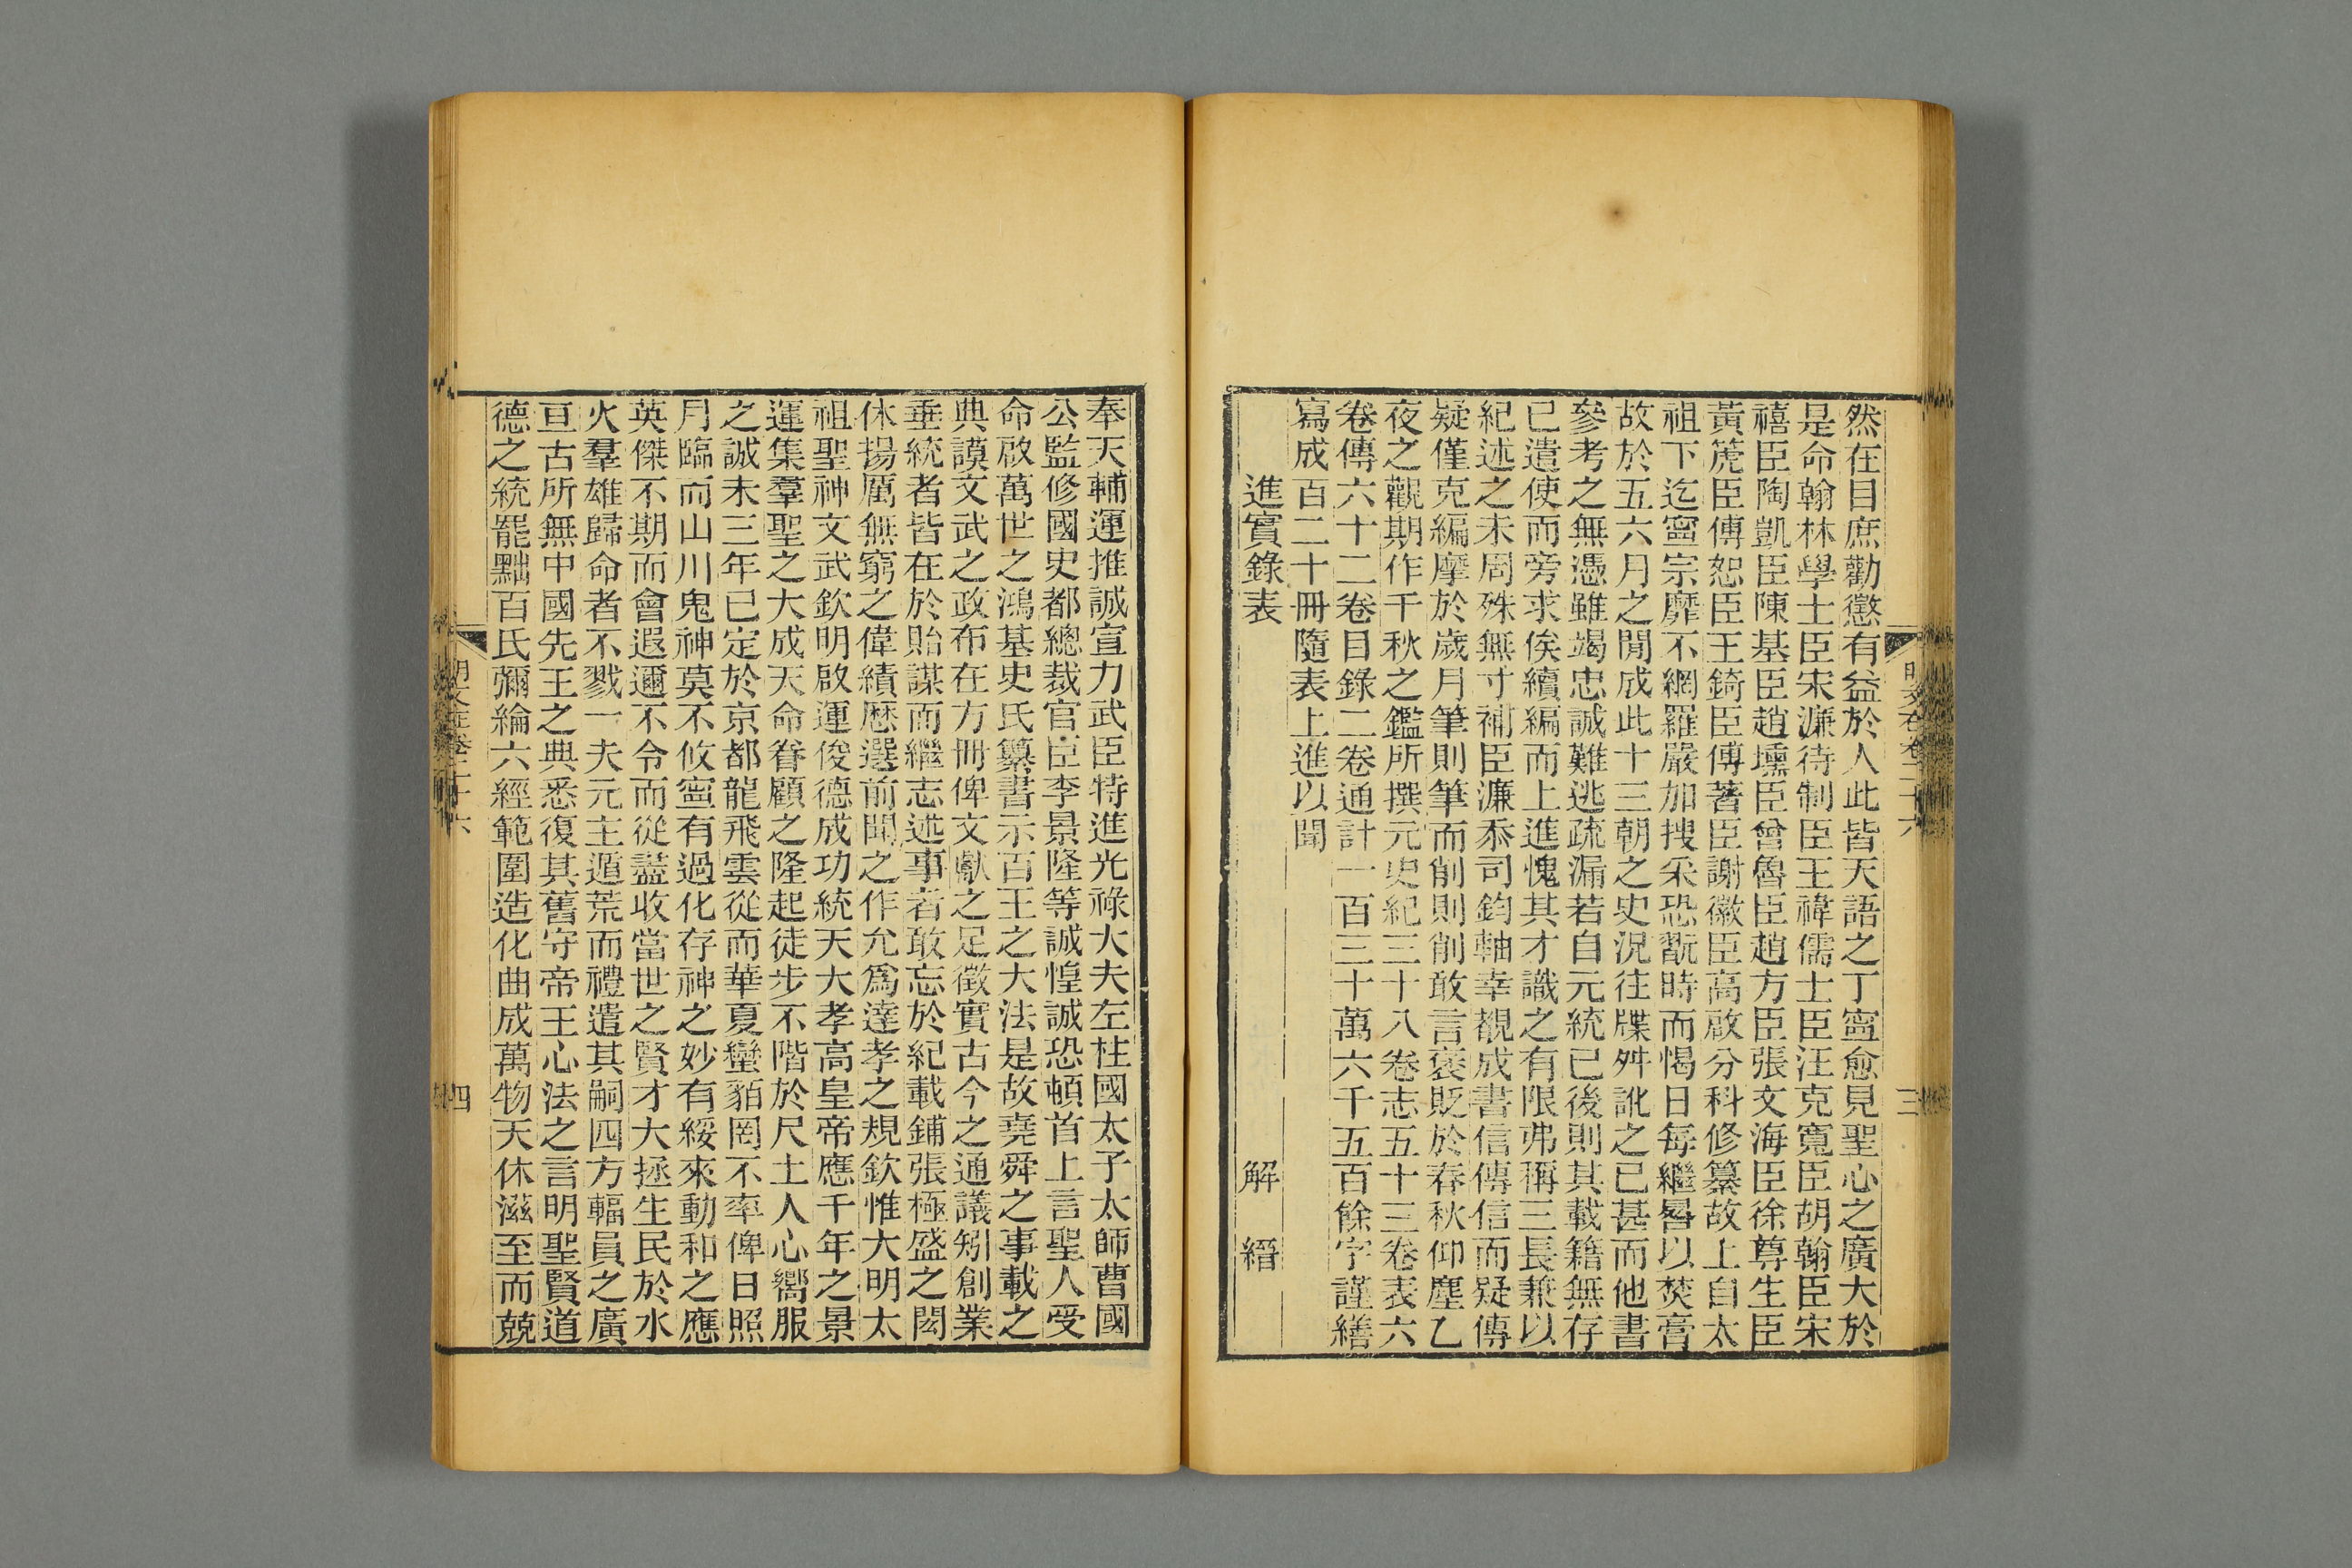 然在目庶勸懲有益於人此皆天語之丁寧愈見聖心之廣大於
是命翰林學士臣宋濂待制臣王禕儒士臣汪克寬臣胡翰臣宋
禧臣陶凱臣陳基臣趙壎臣曾魯臣趙方臣張文海臣徐尊生臣
黃箎臣傅恕臣王錡臣傅著臣謝徽臣高啟分科修纂故上自太
祖下迄寧宗靡不網羅嚴加搜采恐翫時而愒日每繼晷以焚膏
故於五六月之閒成此十三朝之史況往牒舛訛之已甚而他書
參考之無憑雖竭忠誠難逃疏漏若自元統已後則其載籍無存
已遣使而旁求俟續編而上進愧其才識之有限弗稱三長兼以
紀述之未周殊無寸補臣濂忝司鈞軸幸覩成書信傳信而疑傳
疑僅克編摩於歲月筆則筆而削則削敢言褒貶於春秋仰塵乙
夜之觀期作千秋之鑑所撰元史紀三十八卷志五十三卷表六
卷傳六十二卷目錄二卷通計一百三十萬六千五百餘字謹繕
寫成百二十冊隨表上進以聞
進實錄表 解縉
三
奉天輔運推誠宣力武臣特進光祿大夫左柱國太子太師曹國
公監修國史都總裁官臣李景隆等誠惶誠恐頓首上言聖人受
命啟萬世之鴻基史氏纂書示百王之大法是故堯舜之事載之
典謨文武之政布在方冊俾文獻之足徵實古今之通議矧創業
垂統者皆在於貽謀而繼志述事者敢忘於紀載鋪張極盛之閎
休揚厲無窮之偉績歷選前聞之作允為達孝之規欽惟大明太
祖聖神文武欽明啟運俊德成功統天大孝高皇帝應千年之景
運集羣聖之大成天命眷顧之隆起徒步不階於尺土人心嚮服
之誠未三年已定於京都龍飛雲從而華夏蠻貊罔不率俾日照
月臨而山川鬼神莫不攸寧有過化存神之妙有綏來動和之應
英傑不期而會遐邇不令而從蓋收當世之賢才大拯生民於水
火羣雄歸命者不戮一夫元主遁荒而禮遣其嗣四方輻員之廣
亘古所無中國先王之典悉復其舊守帝王心法之言明聖賢道
德之統罷黜百氏彌綸六經範圍造化曲成萬物天休滋至而兢
四